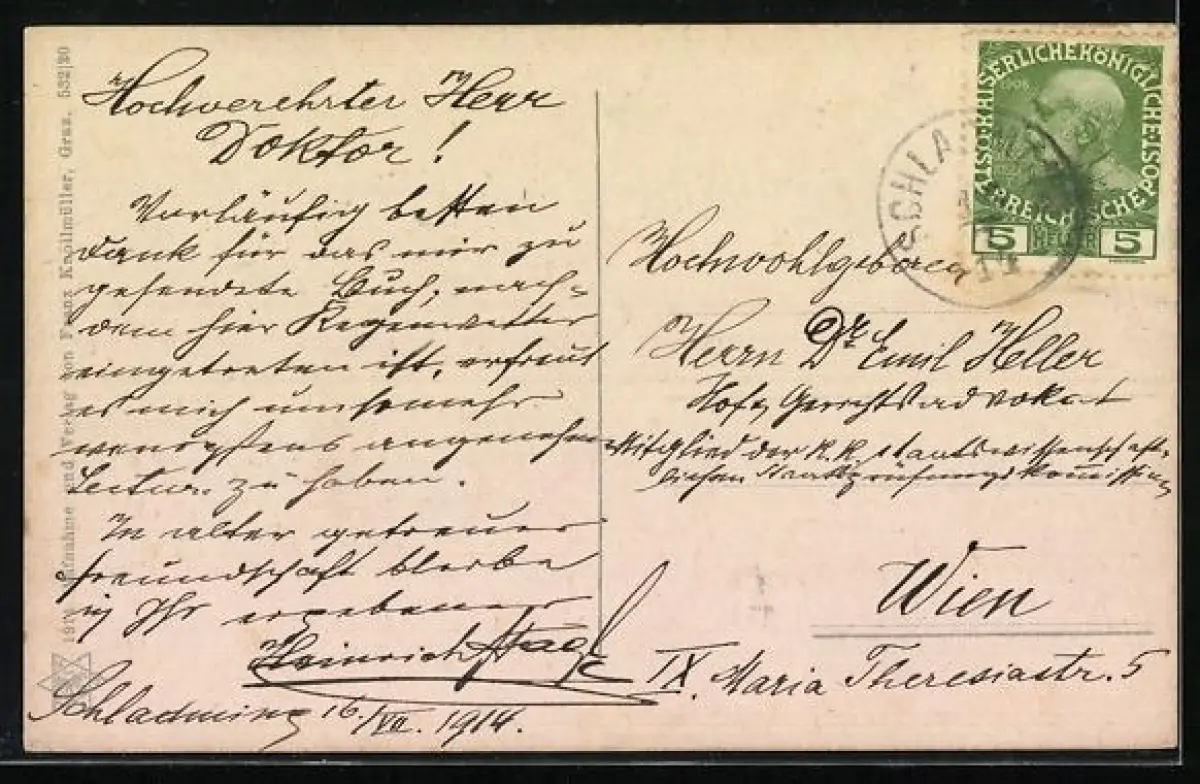 Hochverehrter Herr
Doktor!
Vorläufig besten
Dank für das mir zu
gesendete Buch, nach=
dem hier Regenwetter
eingetreten ist, erfreut
es mich umsomehr
wenigstens angenehme
Lectur zu haben.
In alter getreuer
Freundschaft bleibe
ich Ihr ergebener
Heinrich
Schladming 16./VII. 1914.
Hochwohlgeboren
Herrn Dr. Emil Heller
Hof & Gerichtsadvokat
Mitglied der K.K. staatswissenschaft=
lichen Staatsprüfungskommission
Wien
IX. Maria Theresiastr. 5
Aufnahme und Verlag von Franz Knollmüller, Graz. 532/30
KAISERLICHE KÖNIGLICHE ÖSTERREICHISCHE POST
5 HELLER 5
SCHLA